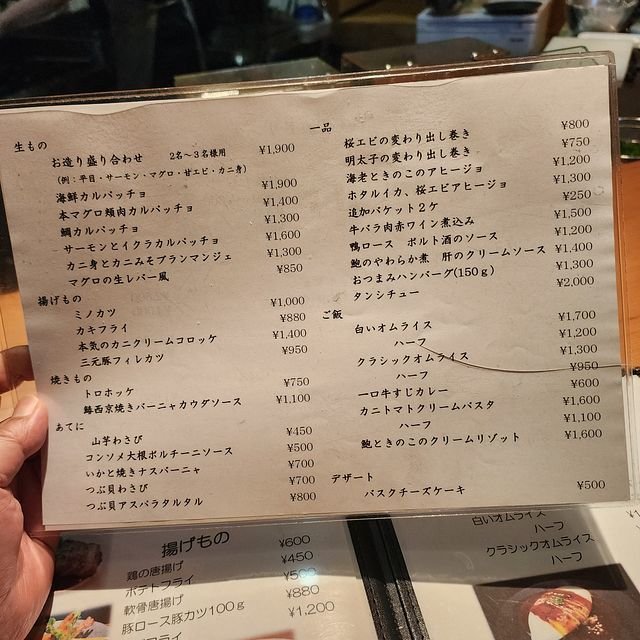 生もの
お造り盛り合わせ 2名～3名様用 ¥1,900
(例：平目・サーモン・マグロ・甘エビ・カニ身)
海鮮カルパッチョ ¥1,900
本マグロ頬肉カルパッチョ ¥1,400
鯛カルパッチョ ¥1,300
サーモンとイクラカルパッチョ ¥1,600
カニ身とカニみそブランマンジェ ¥1,300
マグロの生レバー風 ¥850
揚げもの
ミノカツ ¥1,000
カキフライ ¥880
本気のカニクリームコロッケ ¥1,400
三元豚フィレカツ ¥950
焼きもの
トロホッケ ¥750
鰆西京焼きバーニャカウダソース ¥1,100
あてに
山芋わさび ¥450
コンソメ大根ポルチーニソース ¥500
いかと焼きナスバーニャ ¥700
つぶ貝わさび ¥700
つぶ貝アスパラタルタル ¥800
一品
桜エビの変わり出し巻き ¥800
明太子の変わり出し巻き ¥750
海老ときのこのアヒージョ ¥1,200
ホタルイカ、桜エビアヒージョ ¥1,300
追加バケット２ケ ¥250
牛バラ肉赤ワイン煮込み ¥1,500
鴨ロース ポルト酒のソース ¥1,200
鮑のやわらか煮 肝のクリームソース ¥1,400
おつまみハンバーグ(150ｇ) ¥1,300
タンシチュー ¥2,000
ご飯
白いオムライス ¥1,700
ハーフ ¥1,200
クラシックオムライス ¥1,300
ハーフ ¥950
一口牛すじカレー ¥600
カニトマトクリームパスタ ¥1,600
ハーフ ¥1,100
鮑ときのこのクリームリゾット ¥1,600
デザート
バスクチーズケーキ ¥500
揚げもの
鶏の唐揚げ ¥600
ポテトフライ ¥450
軟骨唐揚げ ¥500
豚ロース豚カツ100ｇ ¥880
¥1,200
白いオムライス
ハーフ
クラシックオムライス
ハーフ